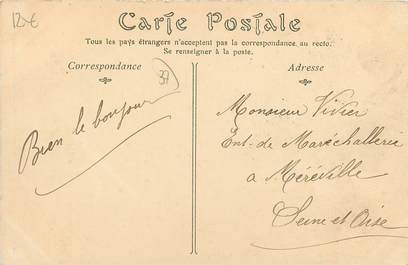 12€
Carte Postale
Tous les pays étrangers n'acceptent pas la correspondance au recto.
Se renseigner à la poste.
Correspondance
37
Adresse
Bien le bonjour
Monsieur Vivier
Ent. de Maréchallerie
a Méréville
Seine et Oise